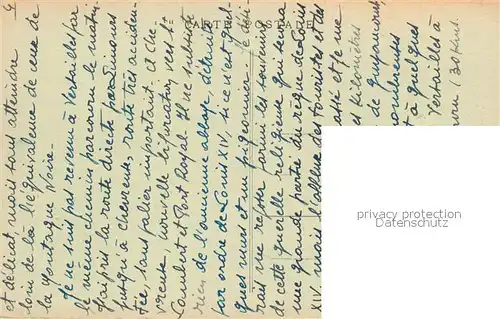 CARTE POSTALE
4
et délicat, mais sans atteindre
loin de là l'équivalence de ceux de
la Montagne Noire.
Je ne suis pas revenu à Versailles par
le même chemin parcouru le matin
J'ai pris la route directe par Limours
jusqu'à Chevreuse, route très acciden-
tée, sans palier important, et Che
vreuse, nouvelle bifurcation vers St
Lambert et Port Royal. Il ne subsiste
rien de l'ancienne abbaye, détruite
par ordre de Louis XIV, si ce n'est quel-
ques murs et un pigeonnier. Je dési-
rais me replier parmi les souvenirs
de cette querelle religieuse qui sema
une grande partie du règne de Louis
XIV, mais l'affluence des touristes et des
et je me
kilomètres
de Guyancourt,
nombreuses
et à quelques
Versailles à
(30 Km).
propriété privée
www.delcampe.net